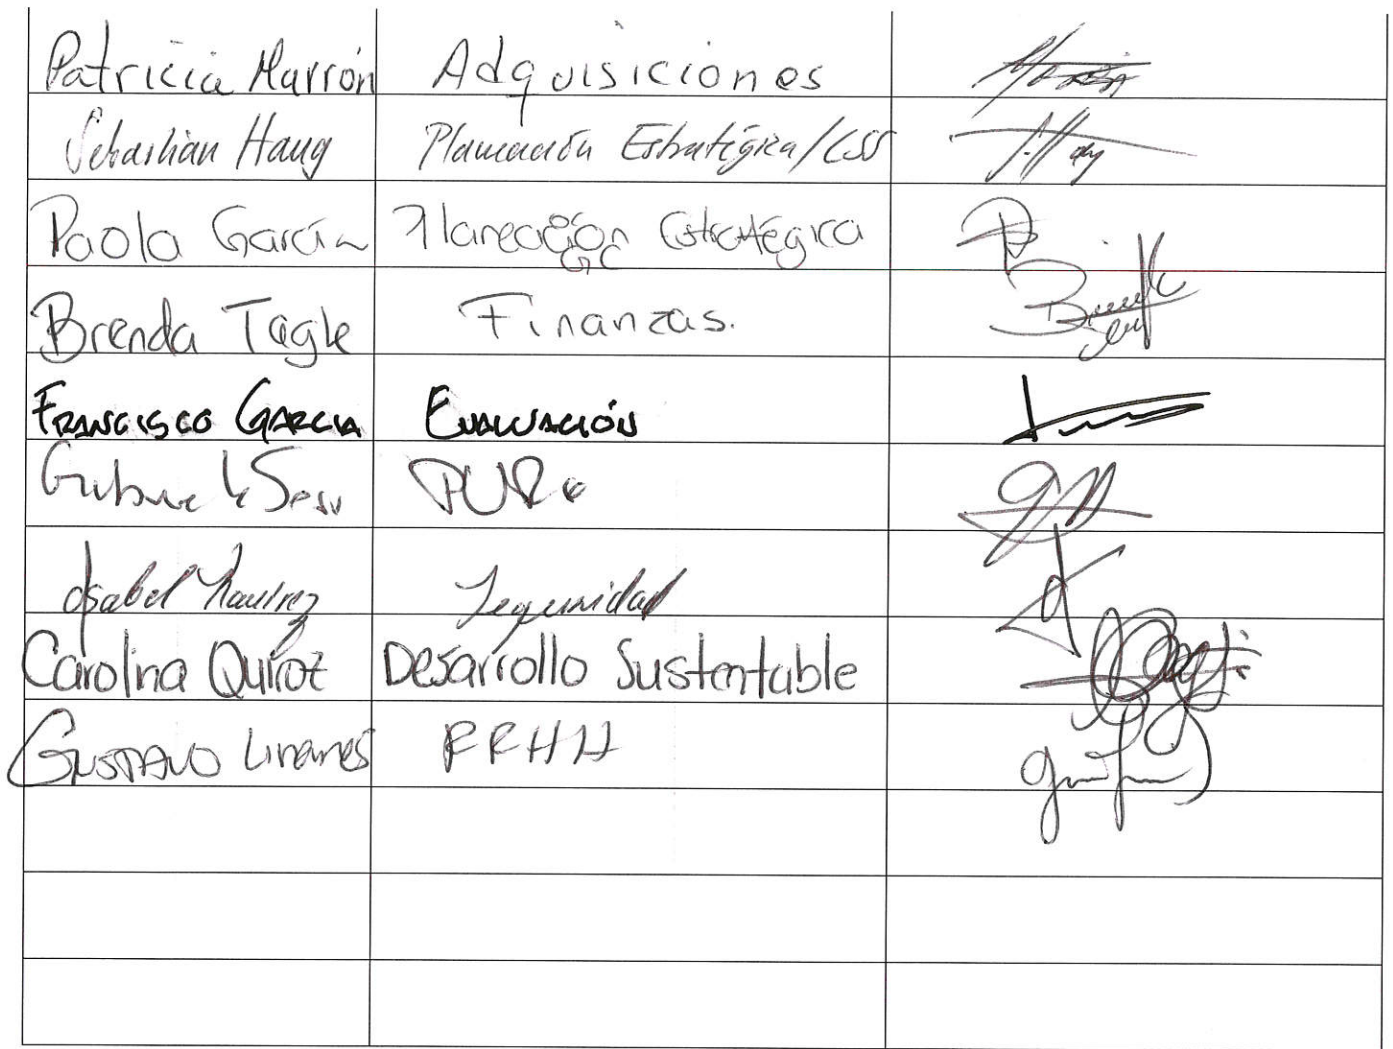 Patricia Marrón Adquisiciones
Sebastian Haug Planeación Estratégica/CSS
Paola García Planeación Estratégica
GC
Brenda Tagle Finanzas.
FRANCISCO GARCIA EVALUACIÓN
Isabel Ramírez Seguridad
Carolina Quiroz Desarrollo Sustentable
GUSTAVO Linares RRHH